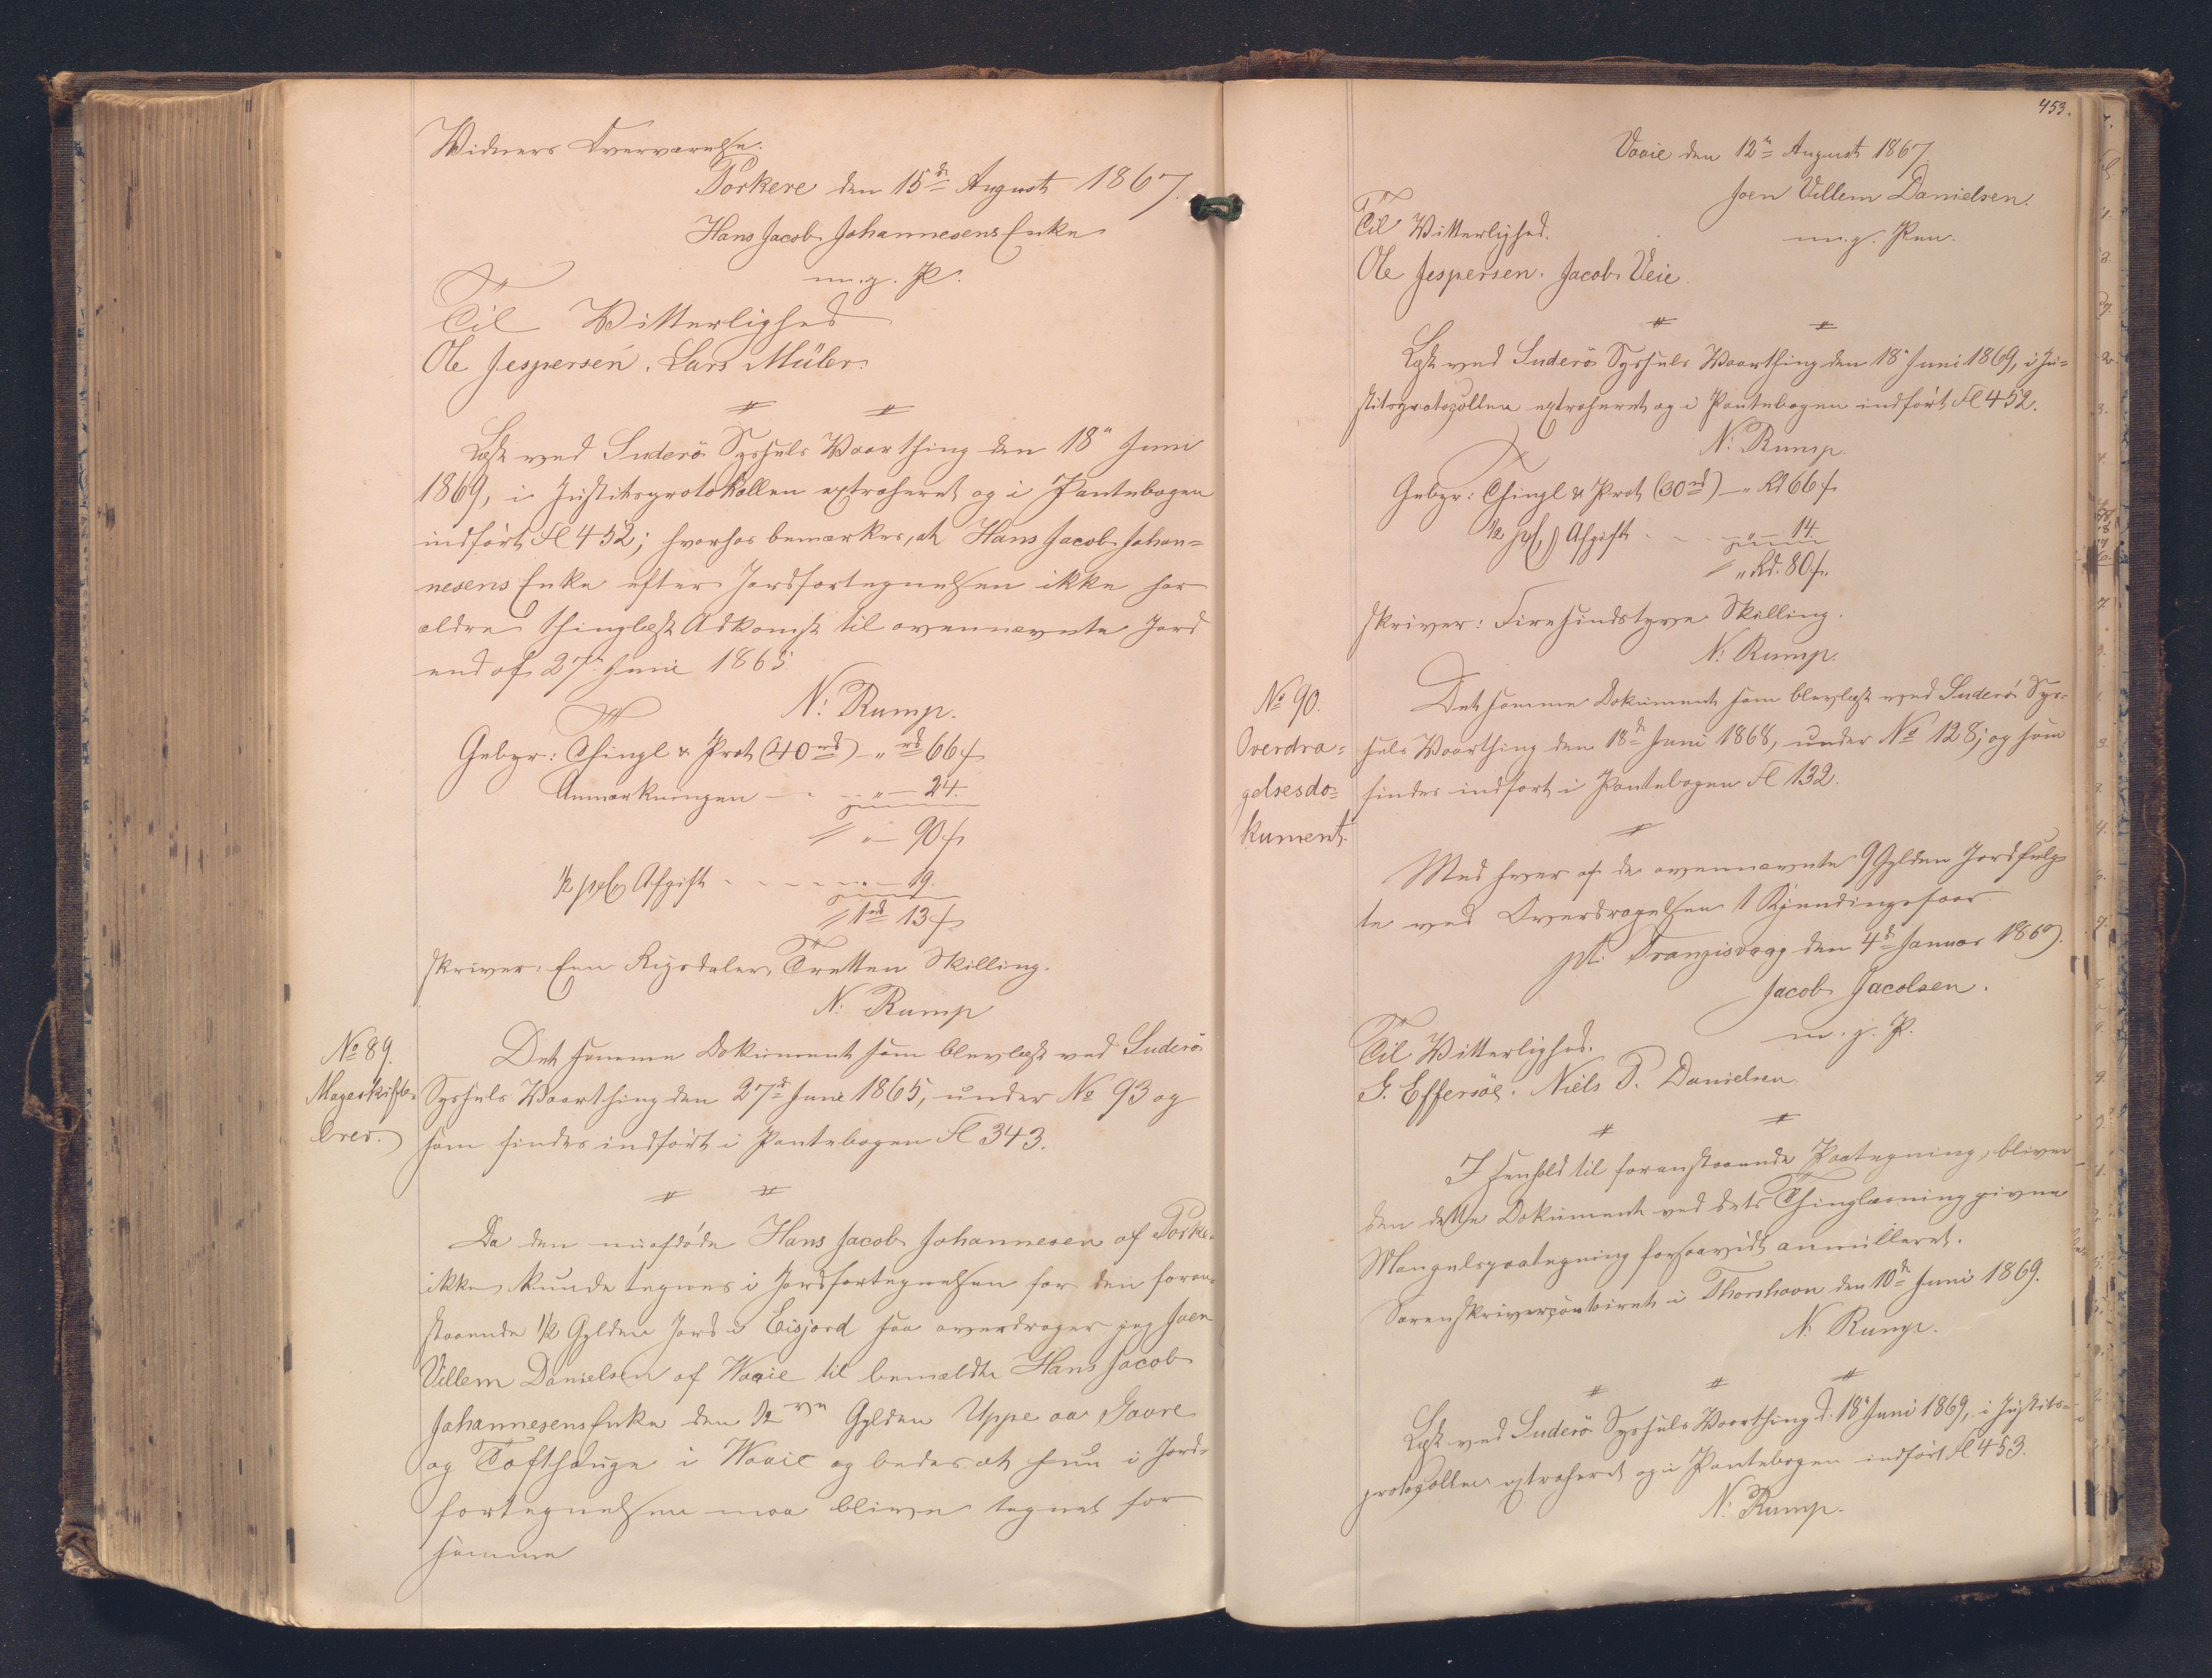 Widners Overværelse.
Porkere den 15de August 1867.
Hans Jacob Johannesens Enke
m. g. P.
Til Vitterlighed
Ole Jespersen. Lars Müler.
Læst ved Suderö Syssels Vaarthing den 18" Juni
1869, i Justitsprotokollen extraheret og i Pantebogen
indført Fl 452; hvorhos bemærkes, at Hans Jacob Johan=
nesens Enke efter Jordfortegnelsen ikke har
ældre thinglæst Adkomst til ovennævnte Jord
end af 27" Juni 1865.
N. Rump.
Gebyr: Thingl & Prot (40 rd) - " rd 66 s
Anmærkningen - " - 24.
" - 90 s
1/2 pCt Afgift - - - " - 19.
1 rd 13 s
skriver: Een Rigsdaler Tretten Skilling.
N. Rump
No 89.
Mageskifte-
brev.
Det samme Dokument som blev læst ved Suderö
Syssels Vaarthing den 27de Juni 1865, under No 93 og
som findes indført i Pantebogen Fl 343.
Da den nu afdøde Hans Jacob Johannesen af Porke-
ikke kunde tegnes i Jordfortegnelsen for den foran-
staaende 1/2 Gylden Jord i Eisjord saa overdrager jeg Joen
Villem Danielsen af Waaie til bemældte Hans Jacob
Johannesens Enke den Gylden Uppe aa Gaare
og Tofthauge i Waaie og bedes at hun i Jord-
fortegnelsen maa blive tegnet for
samme
453.
Vaaie den 12te August 1867.
Joen Villem Danielsen.
m. g. Pen.
Til Vitterlighed.
Ole Jespersen. Jacob Veie.
Læst ved Suderö Syssels Vaarthing den 18" Juni 1869, i Ju=
stitsprotocollen extraheret og i Pantebogen indført Fl 452.
N. Rump.
Gebyr: Thingl & Prot (30 rd) - " Rd 66 s
1/2 pCt Afgift - - - " - 14.
" Rd. 80 s.
skriver: Firesindstyve Skilling.
N. Rump.
No 90.
Overdra=
gelsesdo=
kument.
Det samme Dokument som blev læst ved Suderö Sys-
sels Vaarthing den 18de Juni 1868, under No 128; og som
findes indført i Pantebogen Fl 132.
Med hver af de ovennævnte 9 Gylden Jord fulg-
te ved Overdragelsen 1 Kjendingsfaar.
pt. Frangisvaag den 4de Januar 1869.
Jacob Jacobsen.
m. g. P.
Til Vitterlighed.
G. Effersöe. Niels P. Danielsen.
I Henhold til foranstaaende Paategning, bliver
den dette Dokument ved dets Thinglæsning givne
Mangelspaategning forsaavidt annulleret.
Sorenskrivercontoiret i Thorshavn den 10de Juni 1869.
N. Rump.
Læst ved Suderö Syssels Vaarthing d. 18" Juni 1869, i Justits-
protocollen extraheret og i Pantebogen indført Fl 453.
N. Rump.